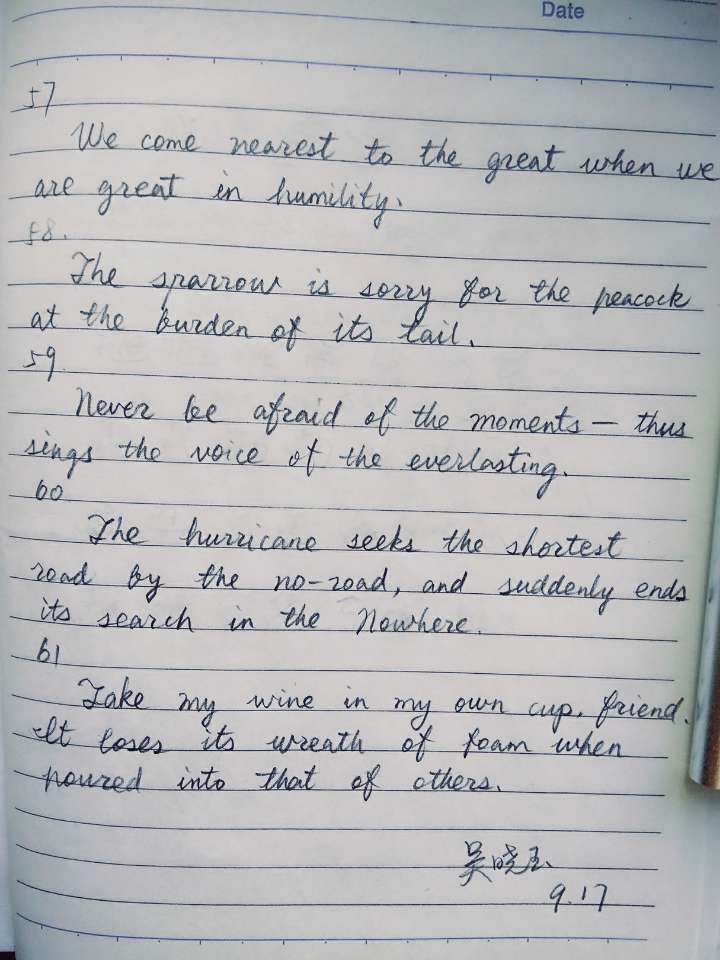 Date
57
We come nearest to the great when we
are great in humility.
58.
The sparrow is sorry for the peacock
at the burden of its tail.
59
Never be afraid of the moments — thus
sings the voice of the everlasting.
60
The hurricane seeks the shortest
road by the no-road, and suddenly ends
its search in the Nowhere.
61
Take my wine in my own cup, friend.
It loses its wreath of foam when
poured into that of others.
吴晓玉
9.17